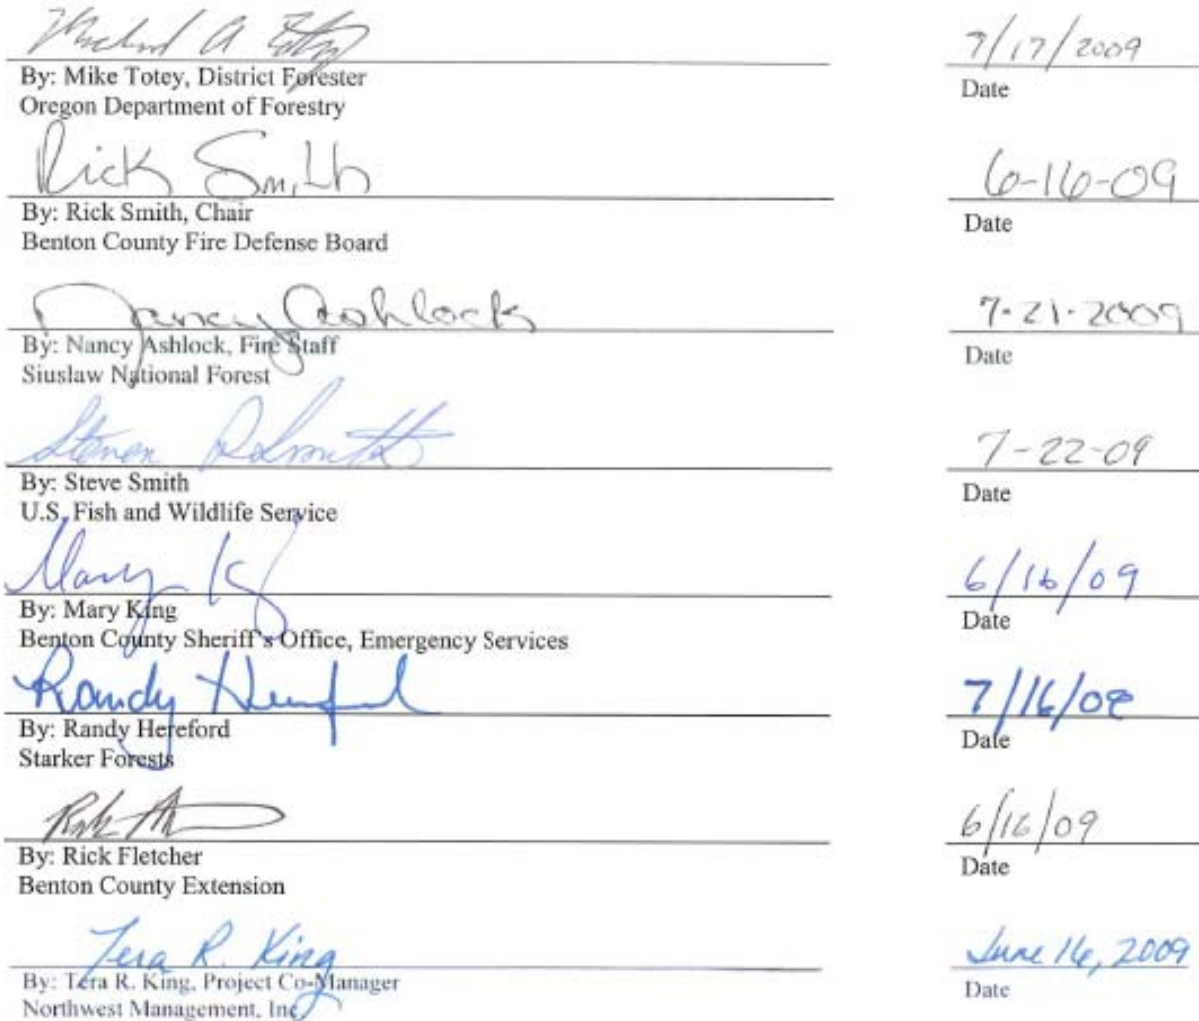 Michael A Totey 7/17/2009
By: Mike Totey, District Forester
Oregon Department of Forestry
Date
Rick Smith 6-16-09
By: Rick Smith, Chair
Benton County Fire Defense Board
Date
Nancy Ashlock 7-21-2009
By: Nancy Ashlock, Fire Staff
Siuslaw National Forest
Date
Steven R Smith 7-22-09
By: Steve Smith
U.S. Fish and Wildlife Service
Date
Mary K 6/16/09
By: Mary King
Benton County Sheriff's Office, Emergency Services
Date
Randy Hereford
By: Randy Hereford
Starker Forests
Date
6/16/09
By: Rick Fletcher
Benton County Extension
Date
Tera R. King June 16, 2009
By: Tera R. King, Project Co-Manager
Northwest Management, Inc
Date